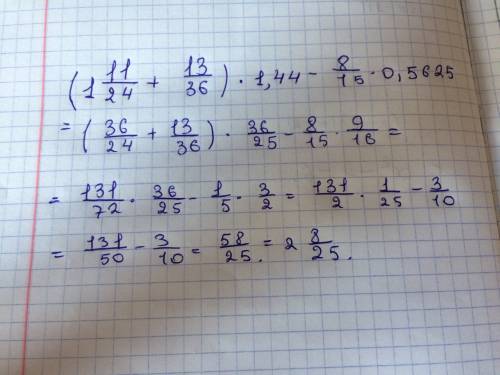 (1 11/24 + 13/36) · 1,44 - 8/15 · 0,5625
= (36/24 + 13/36) · 36/25 - 8/15 · 9/16 =
= 131/72 · 36/25 - 1/5 · 3/2 = 131/2 · 1/25 - 3/10
= 131/50 - 3/10 = 58/25. = 2 8/25.